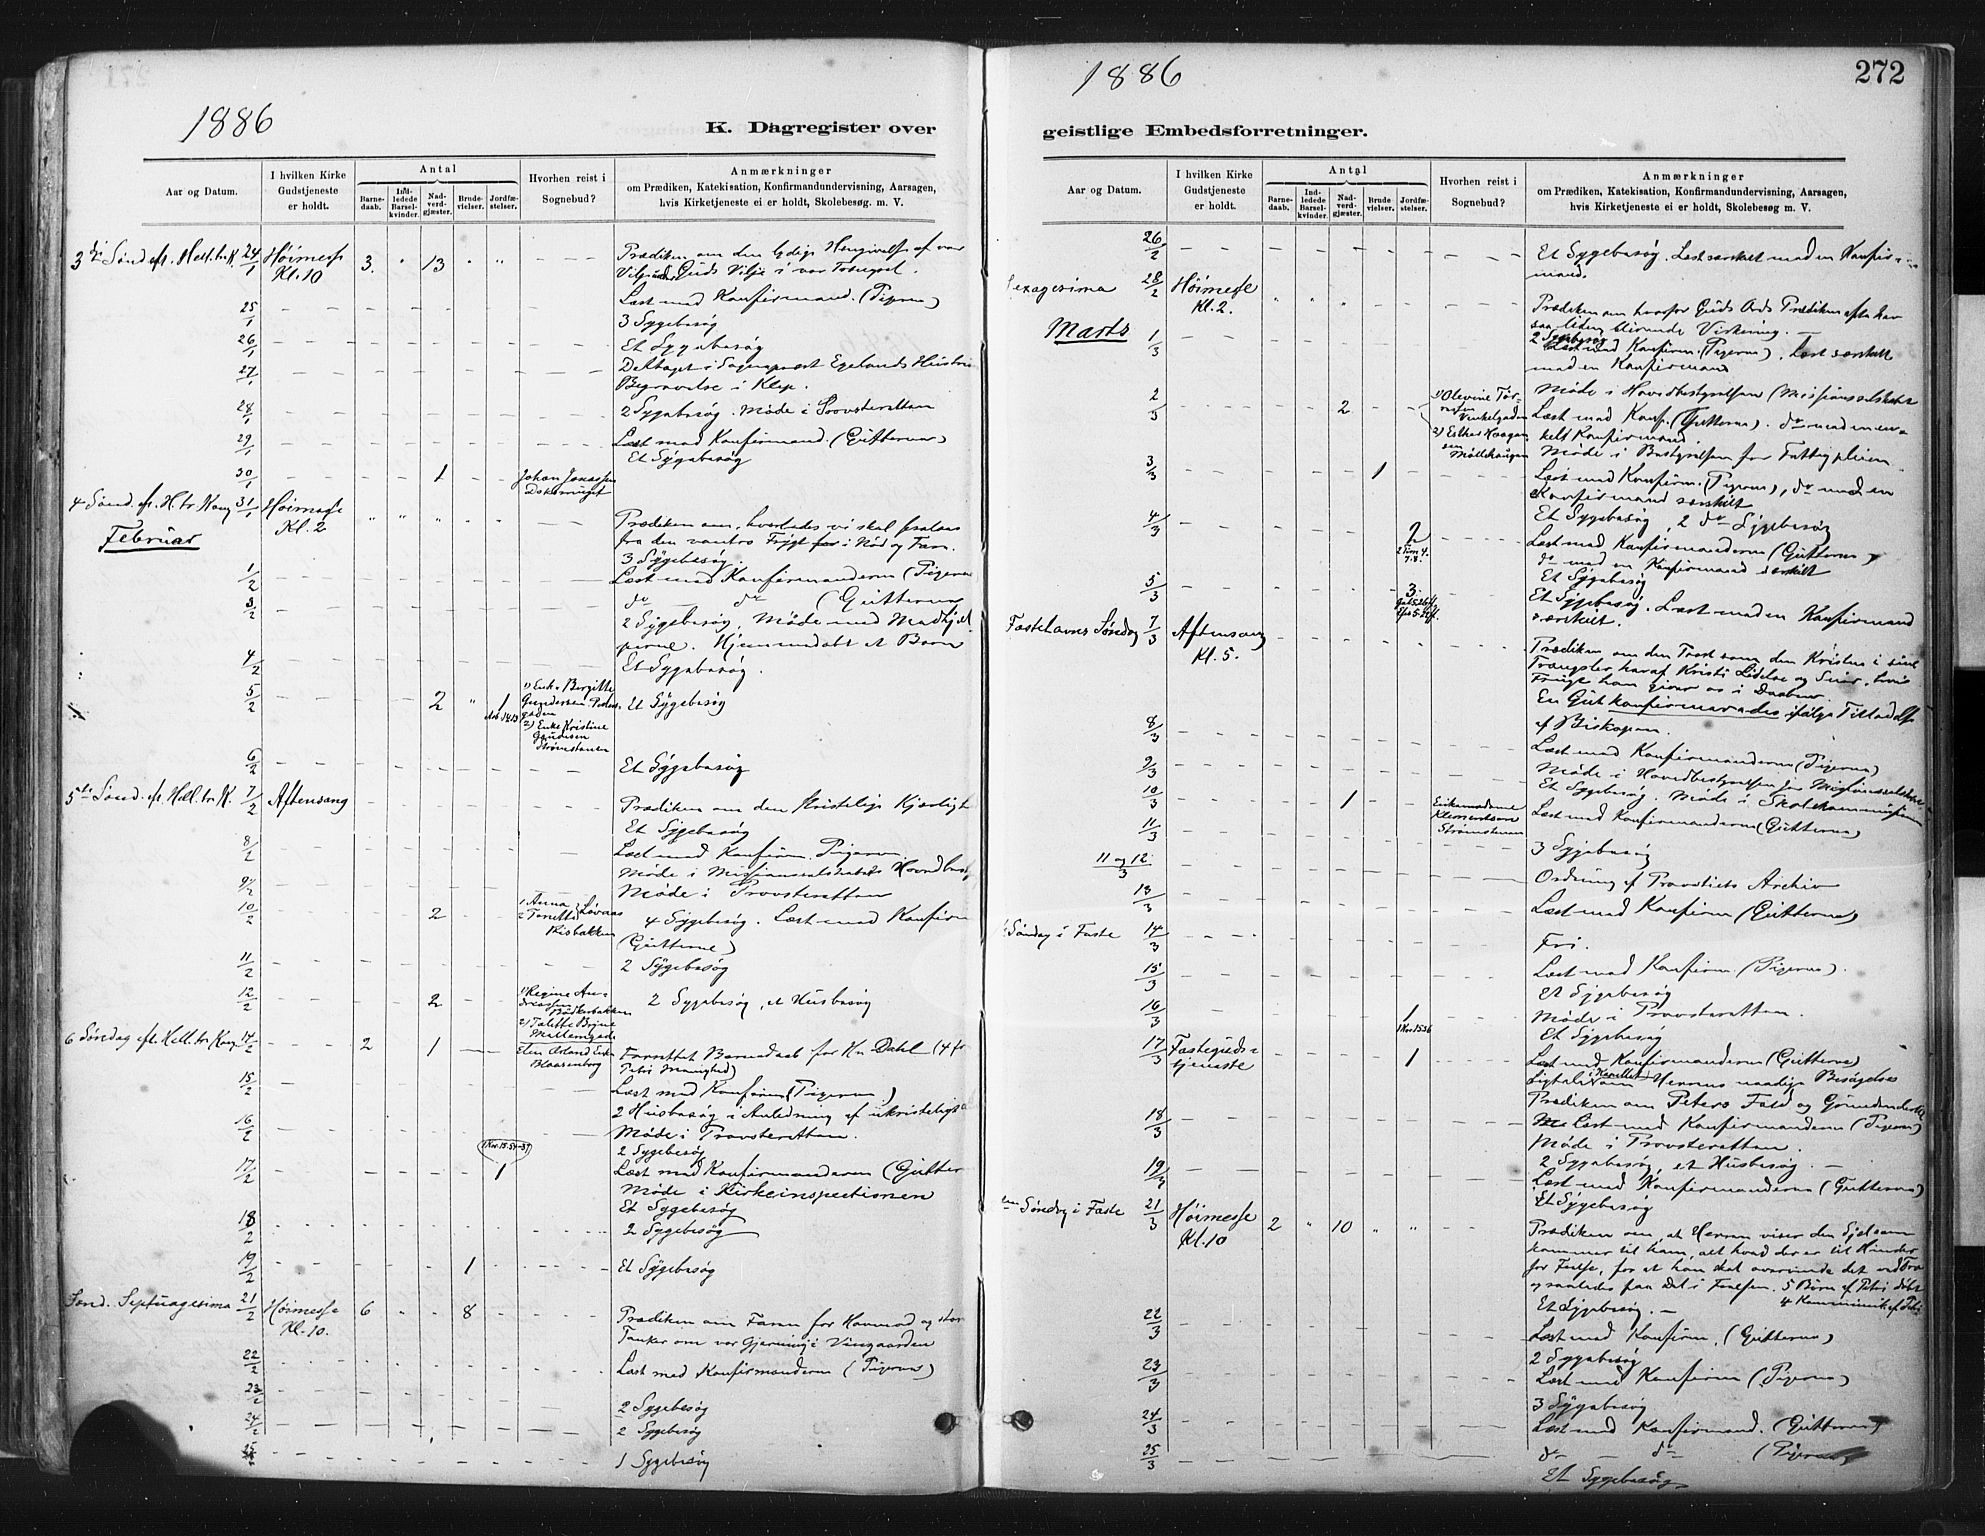 1886
K. Dagregister over
Aar og Datum.
I hvilken Kirke Gudstjeneste er holdt.
Antal
Barnedaab.
Indledede Barselkvinder.
Nadverdgjæster.
Brudevielser.
Jordfæstelser.
Hvorhen reist i Sognebud?
Anmærkninger
om Prædiken, Katekisation, Konfirmandundervisning, Aarsagen,
hvis Kirketjeneste ei er holdt, Skolebesøg. m. V.
3die Sønd. ef. Hell. tr. K. 24/1 Høimesse 3. " 13 " " Prædiken om den lydige Hengivelse af vor
Kl. 10 Vilje under Guds Vilje i vor Trængsel.
25/1 Læst med Konfirmand. (Pigerne)
3 Sygebesøg
26/1 Et Sygebesøg
27/1 Deltaget i Sogneprest Egelands Hustrus
Begravelse i Klep.
28/1 2 Sygebesøg. Møde i Provsteretten
29/1 Læst med Konfirmand. (Gutterne)
Et Sygebesøg
30/1 1 Johan Jonassen
4 Sønd. ef. H. tr. Kong. 31/1 Høimesse
Kl. 2 Prædiken om, hvorledes vi skal frelses
Februar fra den vantro Frygt for i Nød og Farer.
3 Sygebesøg.
1/2 Læst med Konfirmanderne (Pigerne
3/2 do — do (Gutterne
2 Sygebesøg, Møde med Medhjel-
perne. Hjemmedøbt et Barn
4/2 Et Sygebesøg.
5/2 2 " 1 1) Enke Birgitte Gundersen Peders-
gaden
2) Enke Kristine
Strømstenen
Et Sygebesøg
6/2 Et Sygebesøg
5te Sønd. ef. Hell. tr. K. 7/2 Aftensang Prædiken om den kristelige Kjærlighed
Et Sygebesøg
8/2 Læst med Konfirm. Pigerne.
Møde i Missionsselskabets Hovedbest.
9/2 Møde i Provsteretten
10/2 2 1 Anna 2 Torvetta Løvaas
Risbakken
4 Sygebesøg. Læst med Konfirm
(Gutterne)
11/2 2 Sygebesøg
12/2 2 1) Regine An-
dreassen
Bødkerbakken
2) Talette Brijne
2 Sygebesøg, et Husbesøg
6 Søndag eft. Hell. tr. Kong. 14/2 2 1 Elen Orland Enke
Blaasenborg
Forrettet Barnedaab for Hr. Dahl (4 fr
Petri Menighed)
15/2 Læst med Konfirm (Pigerne)
2 Husbesøg i Anledning af ukristeligt
16/2 Møde i Provsteretten.
2 Sygebesøg
17/2 1 Læst med Konfirmanderne (Gutter
Møde i Kirkeinspectionen
Et Sygebesøg
18/2 2 Sygebesøg
19/2 1 Et Sygebesøg
Sønd. Septuagesima 21/2 Høimesse 6 8 Prædiken om Faren for Hovmod og store
Kl. 10. Tanker om vor Gjerning i Vingaarden
22/2 Læst med Konfirmanderne (Pigerne)
23/2 2 Sygebesøg
24/2 2 Sygebesøg
25/2 1 Sygebesøg
1886
272
geistlige Embedsforretninger.
Aar og Datum.
I hvilken Kirke Gudstjeneste er holdt.
Antal
Barnedaab.
Indledede Barselkvinder.
Nadverdgjæster.
Brudevielser.
Jordfæstelser.
Hvorhen reist i Sognebud?
Anmærkninger
om Prædiken, Katekisation, Konfirmandundervisning, Aarsagen,
hvis Kirketjeneste ei er holdt, Skolebesøg m. V.
26/2 Et Sygebesøg. Læst særskilt med en Konfir-
mand.
Sexagesima 28/2 Høimesse
Kl. 2. Prædiken om hvorfor Guds Ords Prædiken ofte har
saa liden blivende Virkning.
Marts 1/3 2 Sygebesøg
Læst med Konfirm. (Pigerne), læst særskilt
med en Konfirmand
2/3 2 1) Olevine Tør-
resen
Vinkelgaden
2) Esther Haagen-
sen
Møllehaugen
Møde i Hovedbestyrelsen (Missionsselskabet
Læst med Konf. (Gutterne). do med en en-
kelt Konfirmand.
Møde i Bestyrelsen for Fattigpleien.
3/3 1 Læst med Konfirm. (Pigerne), do med en
Konfirmand særskilt
4/3 2
2 Tim 4.
7-8.
Et Sygebesøg, 2 do Sygebesøg
Læst med Konfirmanderne (Gutterne)
do med en Konfirmand særskilt
Et Sygebesøg
5/3 3. Et Sygebesøg. Læst med en Konfirmand
særskilt.
Fastelavns Søndag 7/3 Aftensang
Kl. 5. Prædiken om den Trøst som den Kristne i sine
Trængsler har af Kristi Lidelse og Seier, hvis
Frugt han giver os i Daaben.
En Gut konfirmeredes ifølge Tilladelse
af Biskopen.
8/3 Læst med Konfirmanderne (Pigerne)
9/3 Møde i Hovedbestyrelsen for Missionsselskabet
Et Sygebesøg. Møde i Skolekommissionen
10/3 1 Enkemadame
Klementsen
Strømstenen
Læst med Konfirmanderne (Gutterne)
11/3 3 Sygebesøg
11 og 12/3 Ordning af Provstiets Archiv
13/3 Læst med Konfirm (Gutterne)
Søndag i Faste 14/3 Fri.
15/3 Læst med Konfirm (Pigerne).
Et Sygebesøg
16/3 1 Møde i Provsteretten.
Et Sygebesøg
17/3 Fastegud-
tjeneste 1 Læst med Konfirmanderne (Gutterne)
Ligtale i Kapellet om Herrens naadige Besøgelse
Prædiken om Peters Fald og
18/3 Læst med Konfirmanderne (Pigerne)
Møde i Provsteretten.
2 Sygebesøg, et Husbesøg.
19/3 Læst med Konfirmanderne (Gutterne)
Et Sygebesøg
Søndag i Faste 21/3 Høimesse 2 " 10 " "
Kl. 10 Prædiken om, at Herren viser den Sjel som
kommer til ham, alt hvad der er til Hinder
for Frelse, for at han skal overvinde det ved Tro
og saaledes faa Del i Frelsen. 5 Børn af Petri døbt
4 Kommunik. af Petri
Et Sygebesøg.
22/3 Læst med Konfirm. (Gutterne)
2 Sygebesøg
23/3 Læst med Konfirm (Pigerne)
3 Sygebesøg
24/3 Læst med Konfirmand. (Gutterne)
25/3 do — do (Pigerne)
Et Sygebesøg